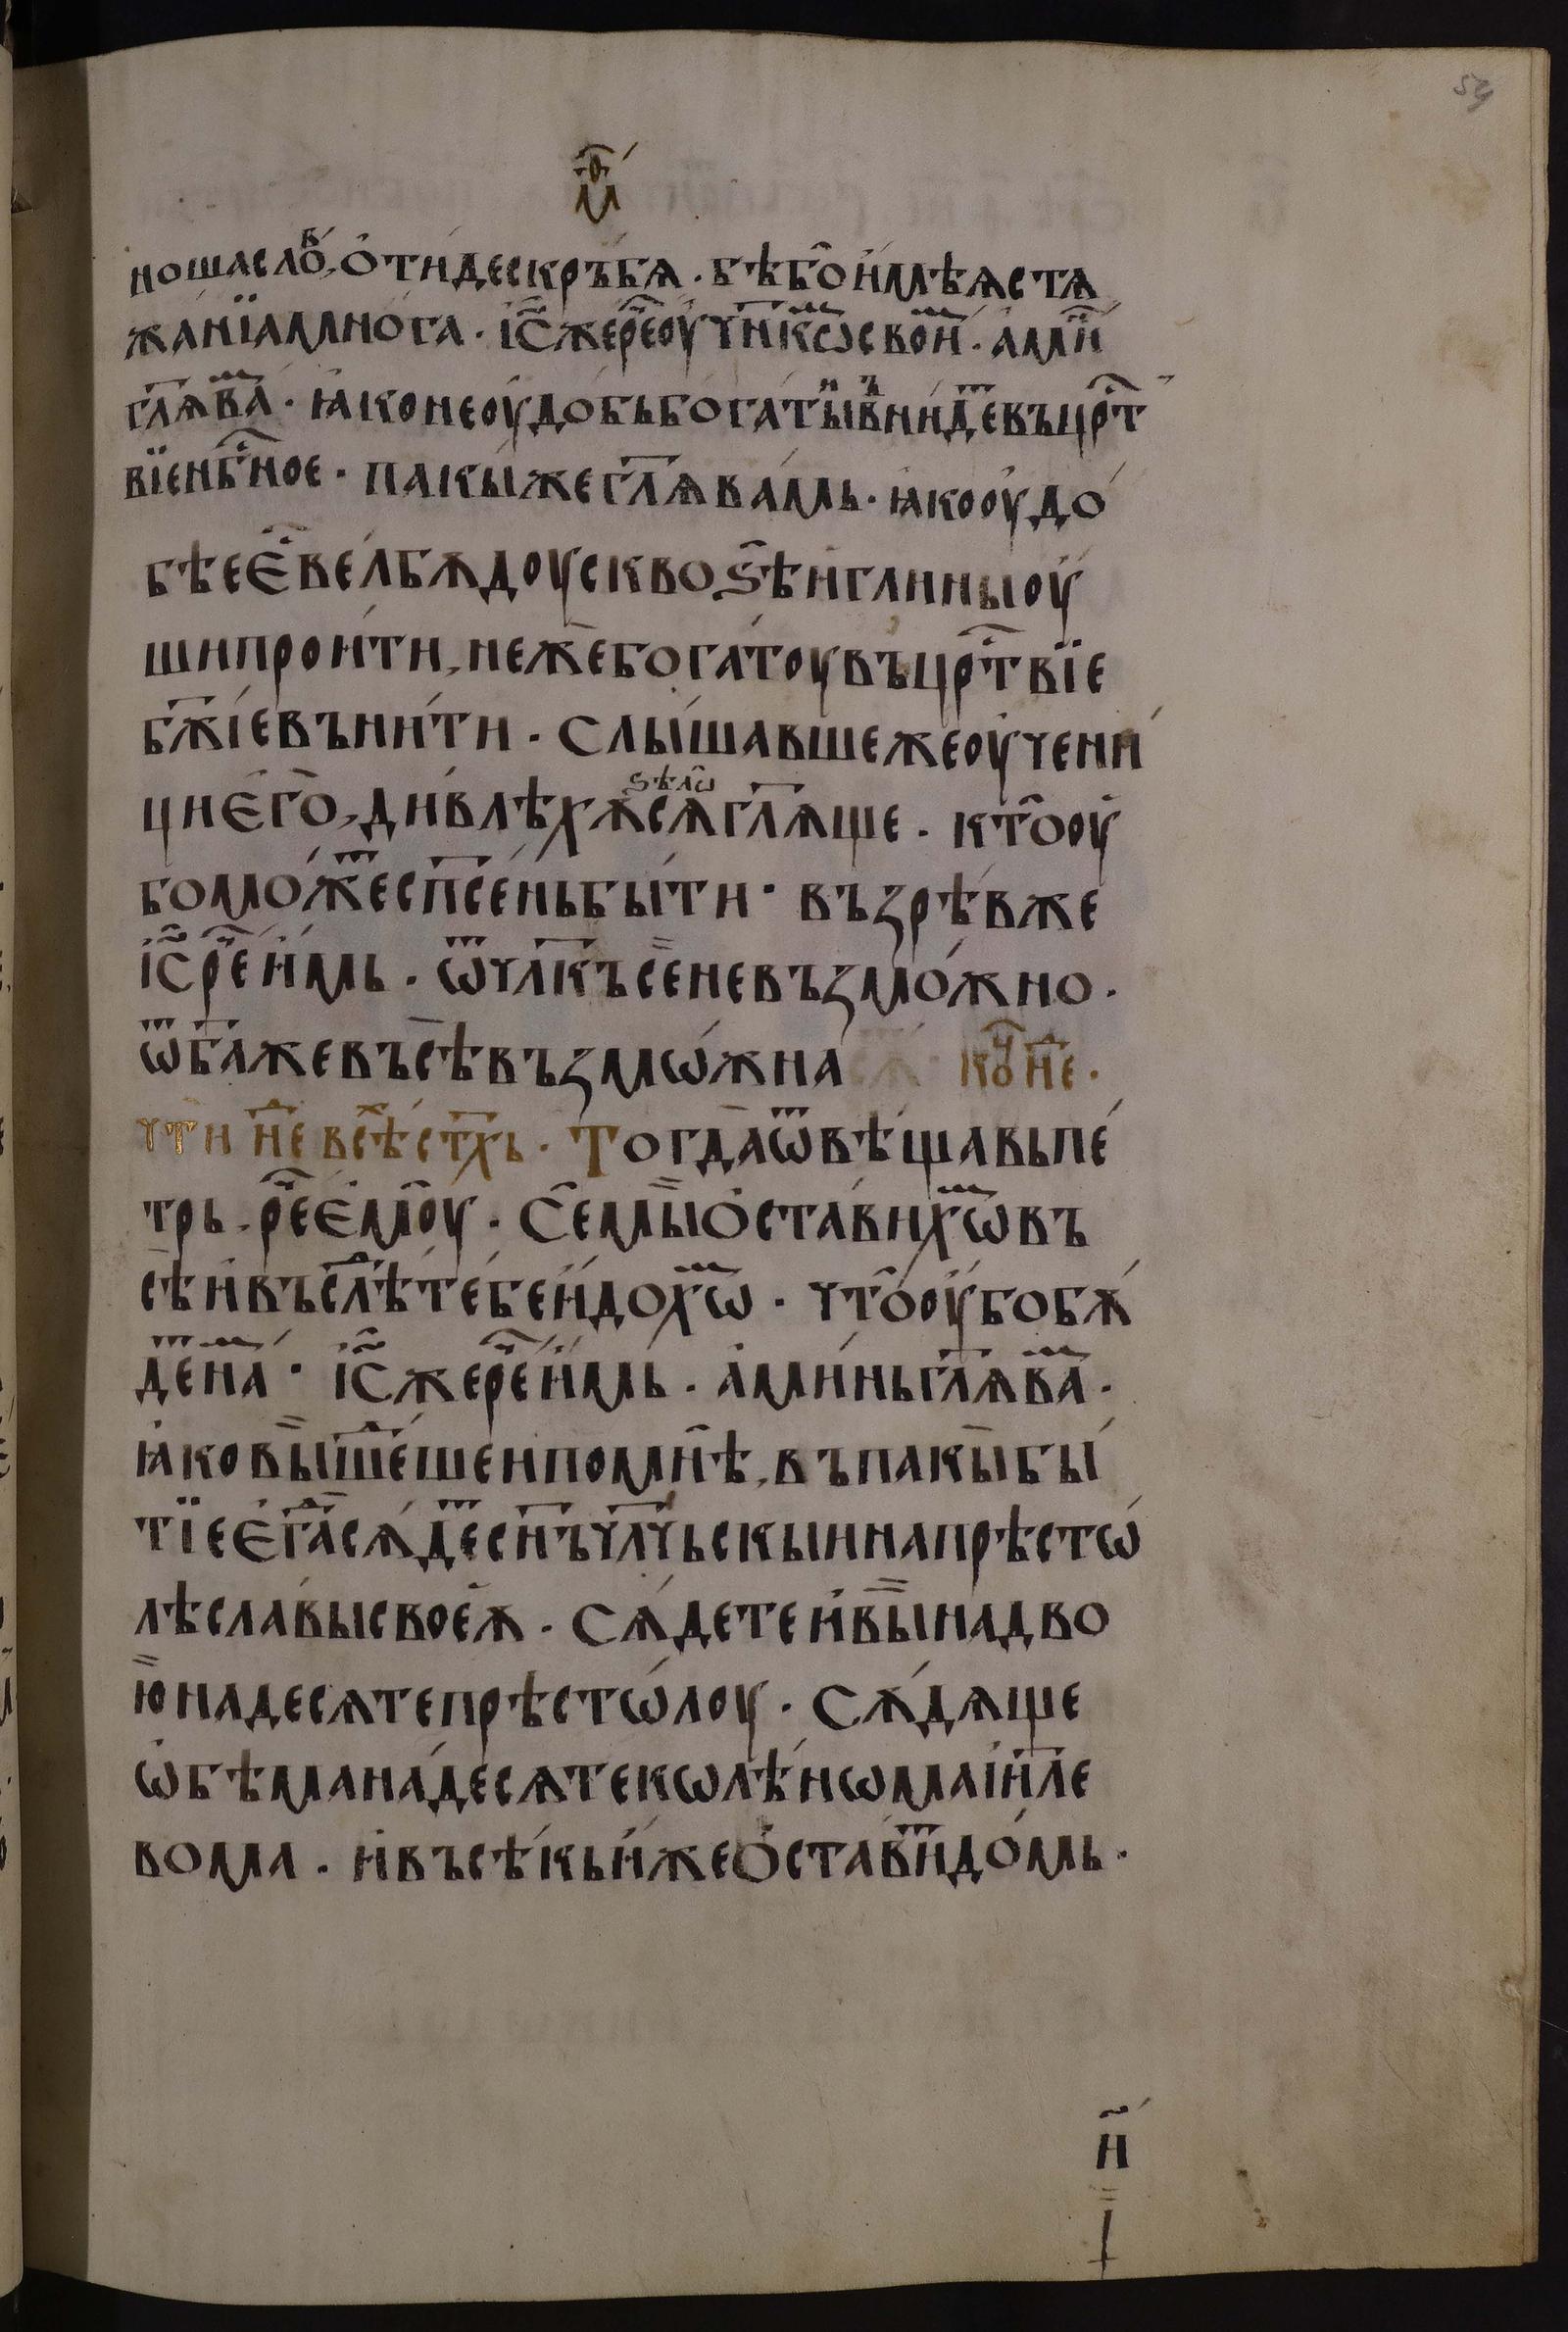 м҃ѳ
ноша сло́в, ѡ҆ти́де скръбѧ · бѣ бо̂ и҆мѣѧ стѧ
жа́нїа мно́га · і҆с҃ же ре҇ оу҆чн҃кѡм свои́м · а҆ми́н
гл҃ѧ ва́м · ꙗ҆ко не оу҆до́бь бога́тыи въни́дет въ црⷭ҇т
вїе нбⷭ҇ное · пакы́ же гл҃ѧ ва́мь · ꙗ҆ко оу҆до́
бѣе є҆с҇ ве́лбѫдоу сквоѕѣ̂ и҆глины оу҆
ши проити́, неже̂ бога́тоу въ црⷭ҇твїе
бж҃іе въни́ти · Слы́шавше же оу҆чени́
ци є҆го̂, ди́влѣхѫ сѧ ѕѣлѡ̂ гл҃ѧще · кто̂ оу҆
бо мо́жет сп҃се́нь бы́ти · възрѣ́в же
і҆с҃ ре҇ и҆́мь · ѿ чл҃къ се̏ невъзмо́жно ·
ѿ б҃а же въсѣ̀ възмѡ́жна кѡⷰ҇ не҇ ·
чти не҇ всѣ́х ст҃хь · Тогда̀ ѿвѣ́щавь пе́
трь, ре҇ є҆мо̂у · Се̂ мы̏ ѡ҆ста́вихѡм въ
сѣ̀ и҆ въслѣ́д те́бе и҆́дохѡм · что̂ оу҆бо бѫ́
дет на́м · і҆с҃ же ре҇ и҆́мь · а҆ми́нь гл҃ѧ ва́м ·
ꙗ҆ко вы̏ ше́дшеи по мнѣ̂, въ пакы̀бы́
тїе є҆гда̀ сѧ́дет сн҃ъ чл҃чьскыи на прѣстѡ́
лѣ славы́ своеѧ̀ · Сѧ́дете и҆ вы̏ на дво
ю̏ на десѧте прѣстѡ́лоу · Сѫ́дѧще
ѡ҆бѣма на́десѧте кѡлѣ́нѡма і҆и҃ле
вома · и҆ въсѣ́кь и҆́же ѡ҆ста́вит до́мь ·
и҃